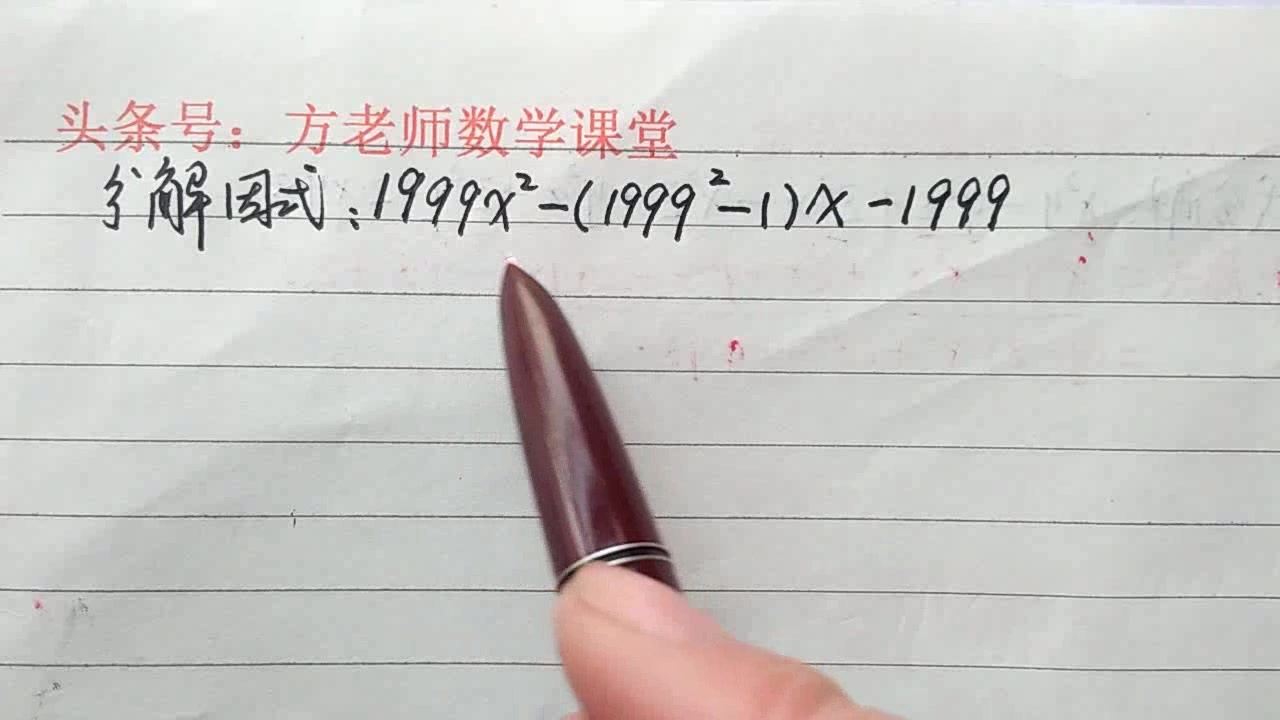 头条号：方老师数学课堂
分解因式：1999x²-(1999²-1)x-1999